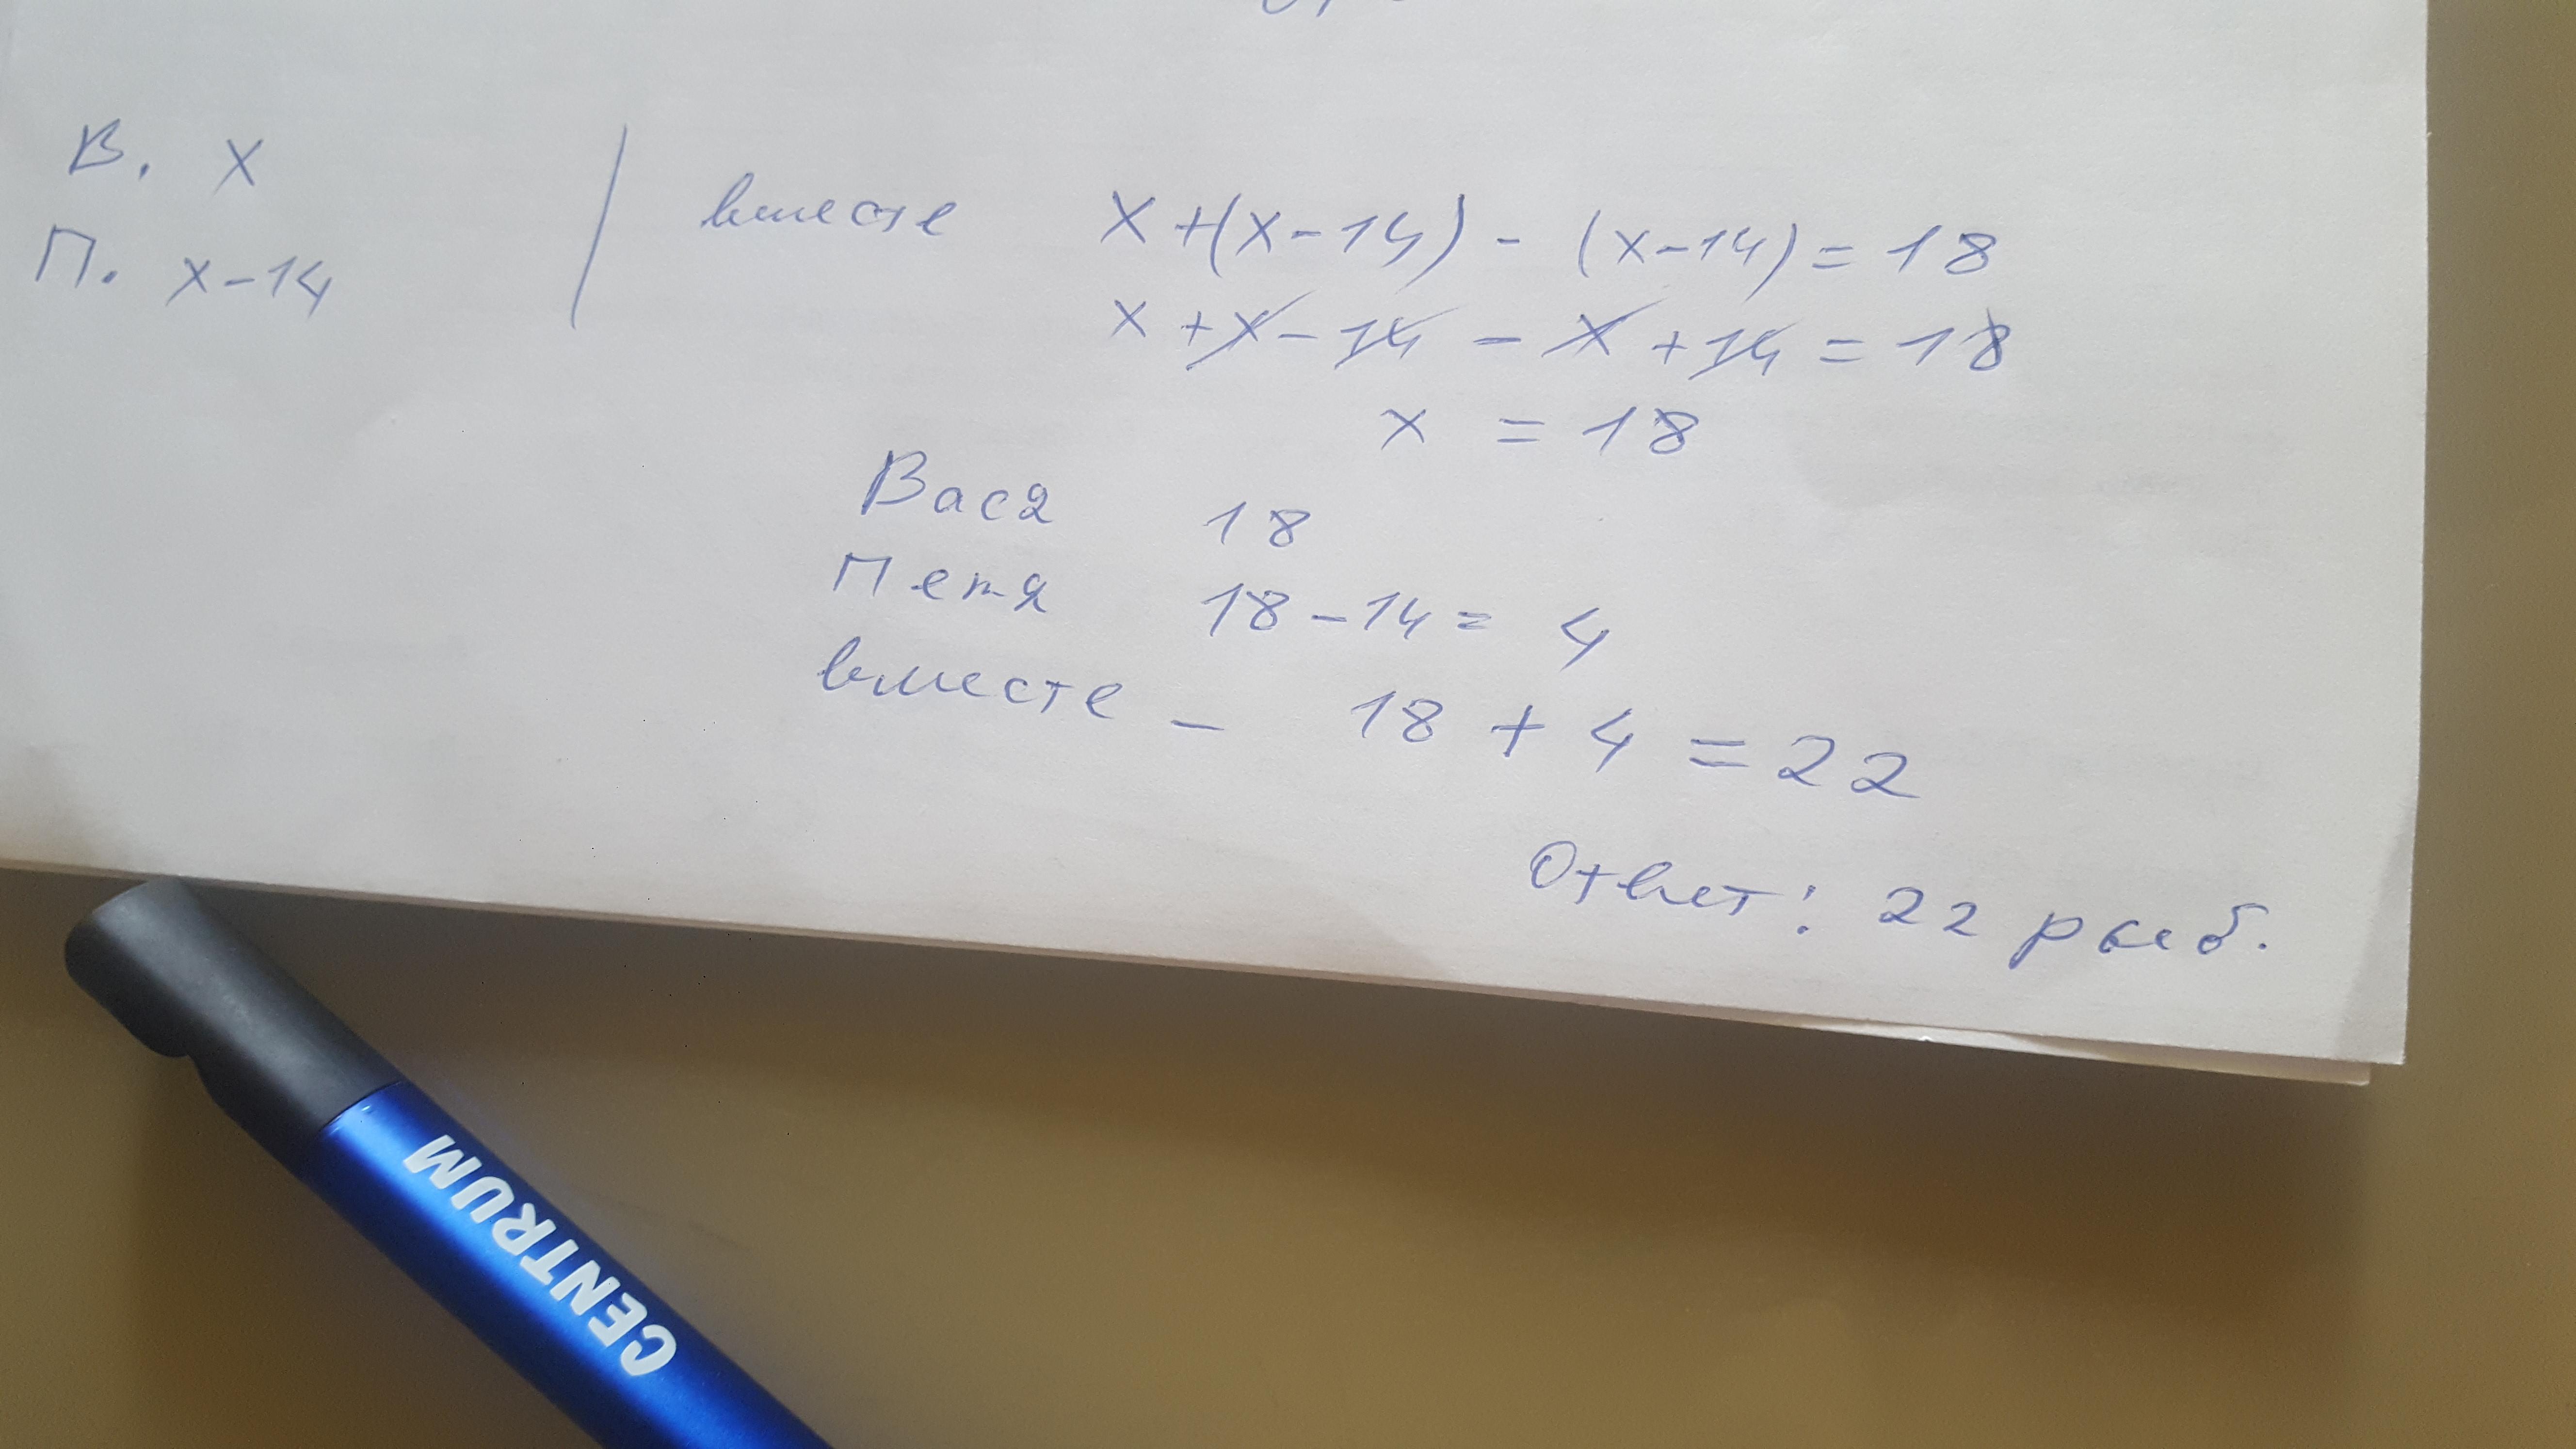 В. x
П. x-14
вместе x+(x-14) - (x-14) = 18
x+x-14 - x + 14 = 18
x = 18
Вася 18
Петя 18-14= 4
вместе - 18 + 4 = 22
Ответ: 22 рыб.
CENTRUM